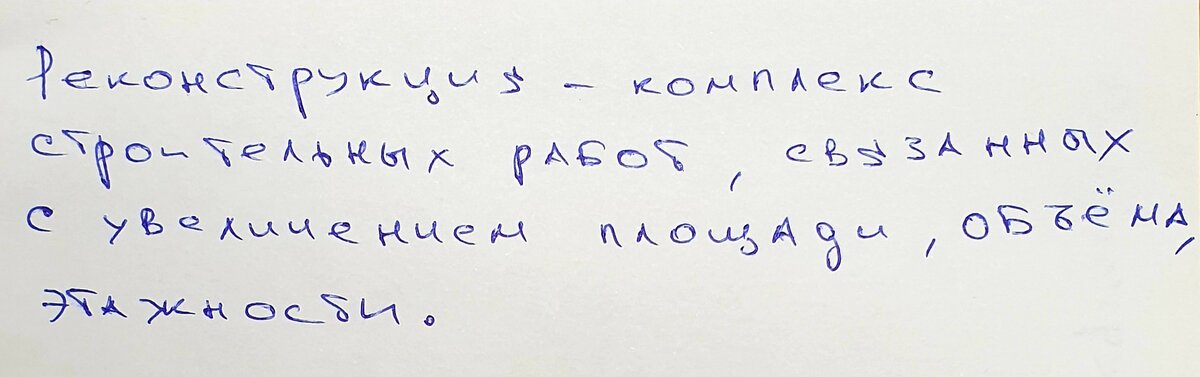 Реконструкция – комплекс
строительных работ, связанных
с увеличением площади, объёма,
этажности.